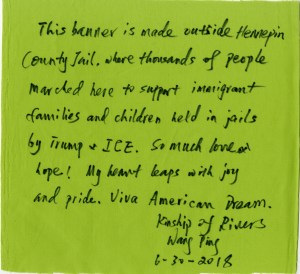 This banner is made outside Hennepin
County Jail. where thousands of people
marched here to support immigrant
families and children held in jails
by Trump & ICE. So much love &
hope! My heart leaps with joy
and pride. Viva American Dream.
Kinship of Rivers
Wang Ping
6-30-2018